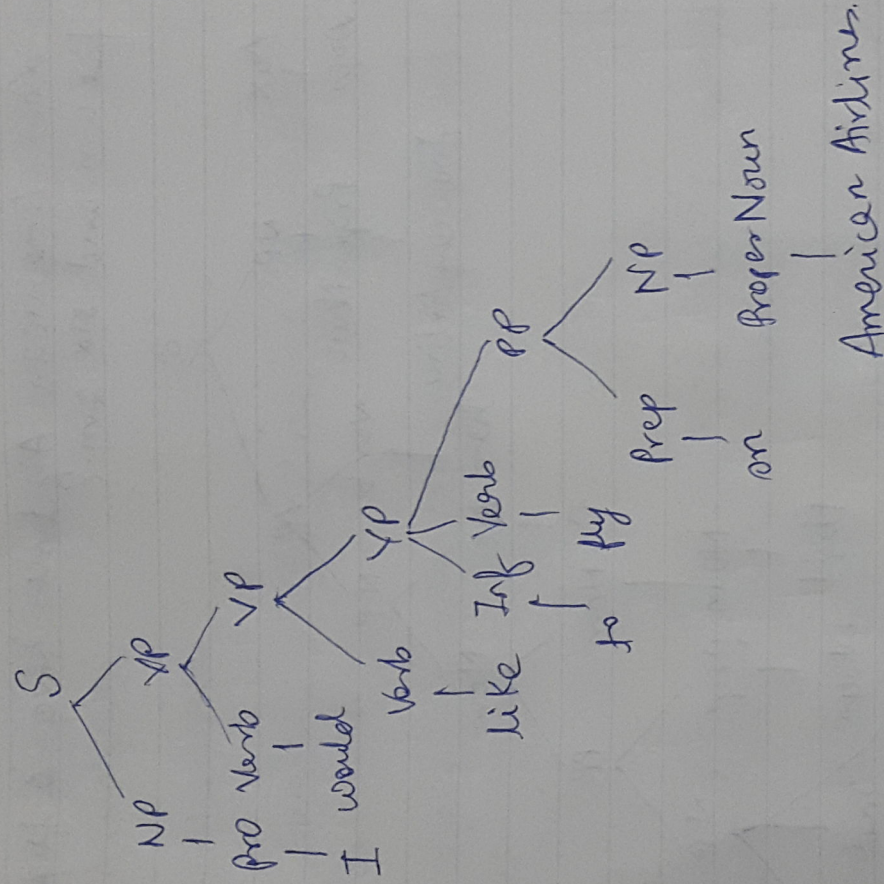 S
NP VP
Pro Verb VP
I would Verb VP
like Inf Verb PP
to fly Prep NP
on Proper Noun
American Airlines.